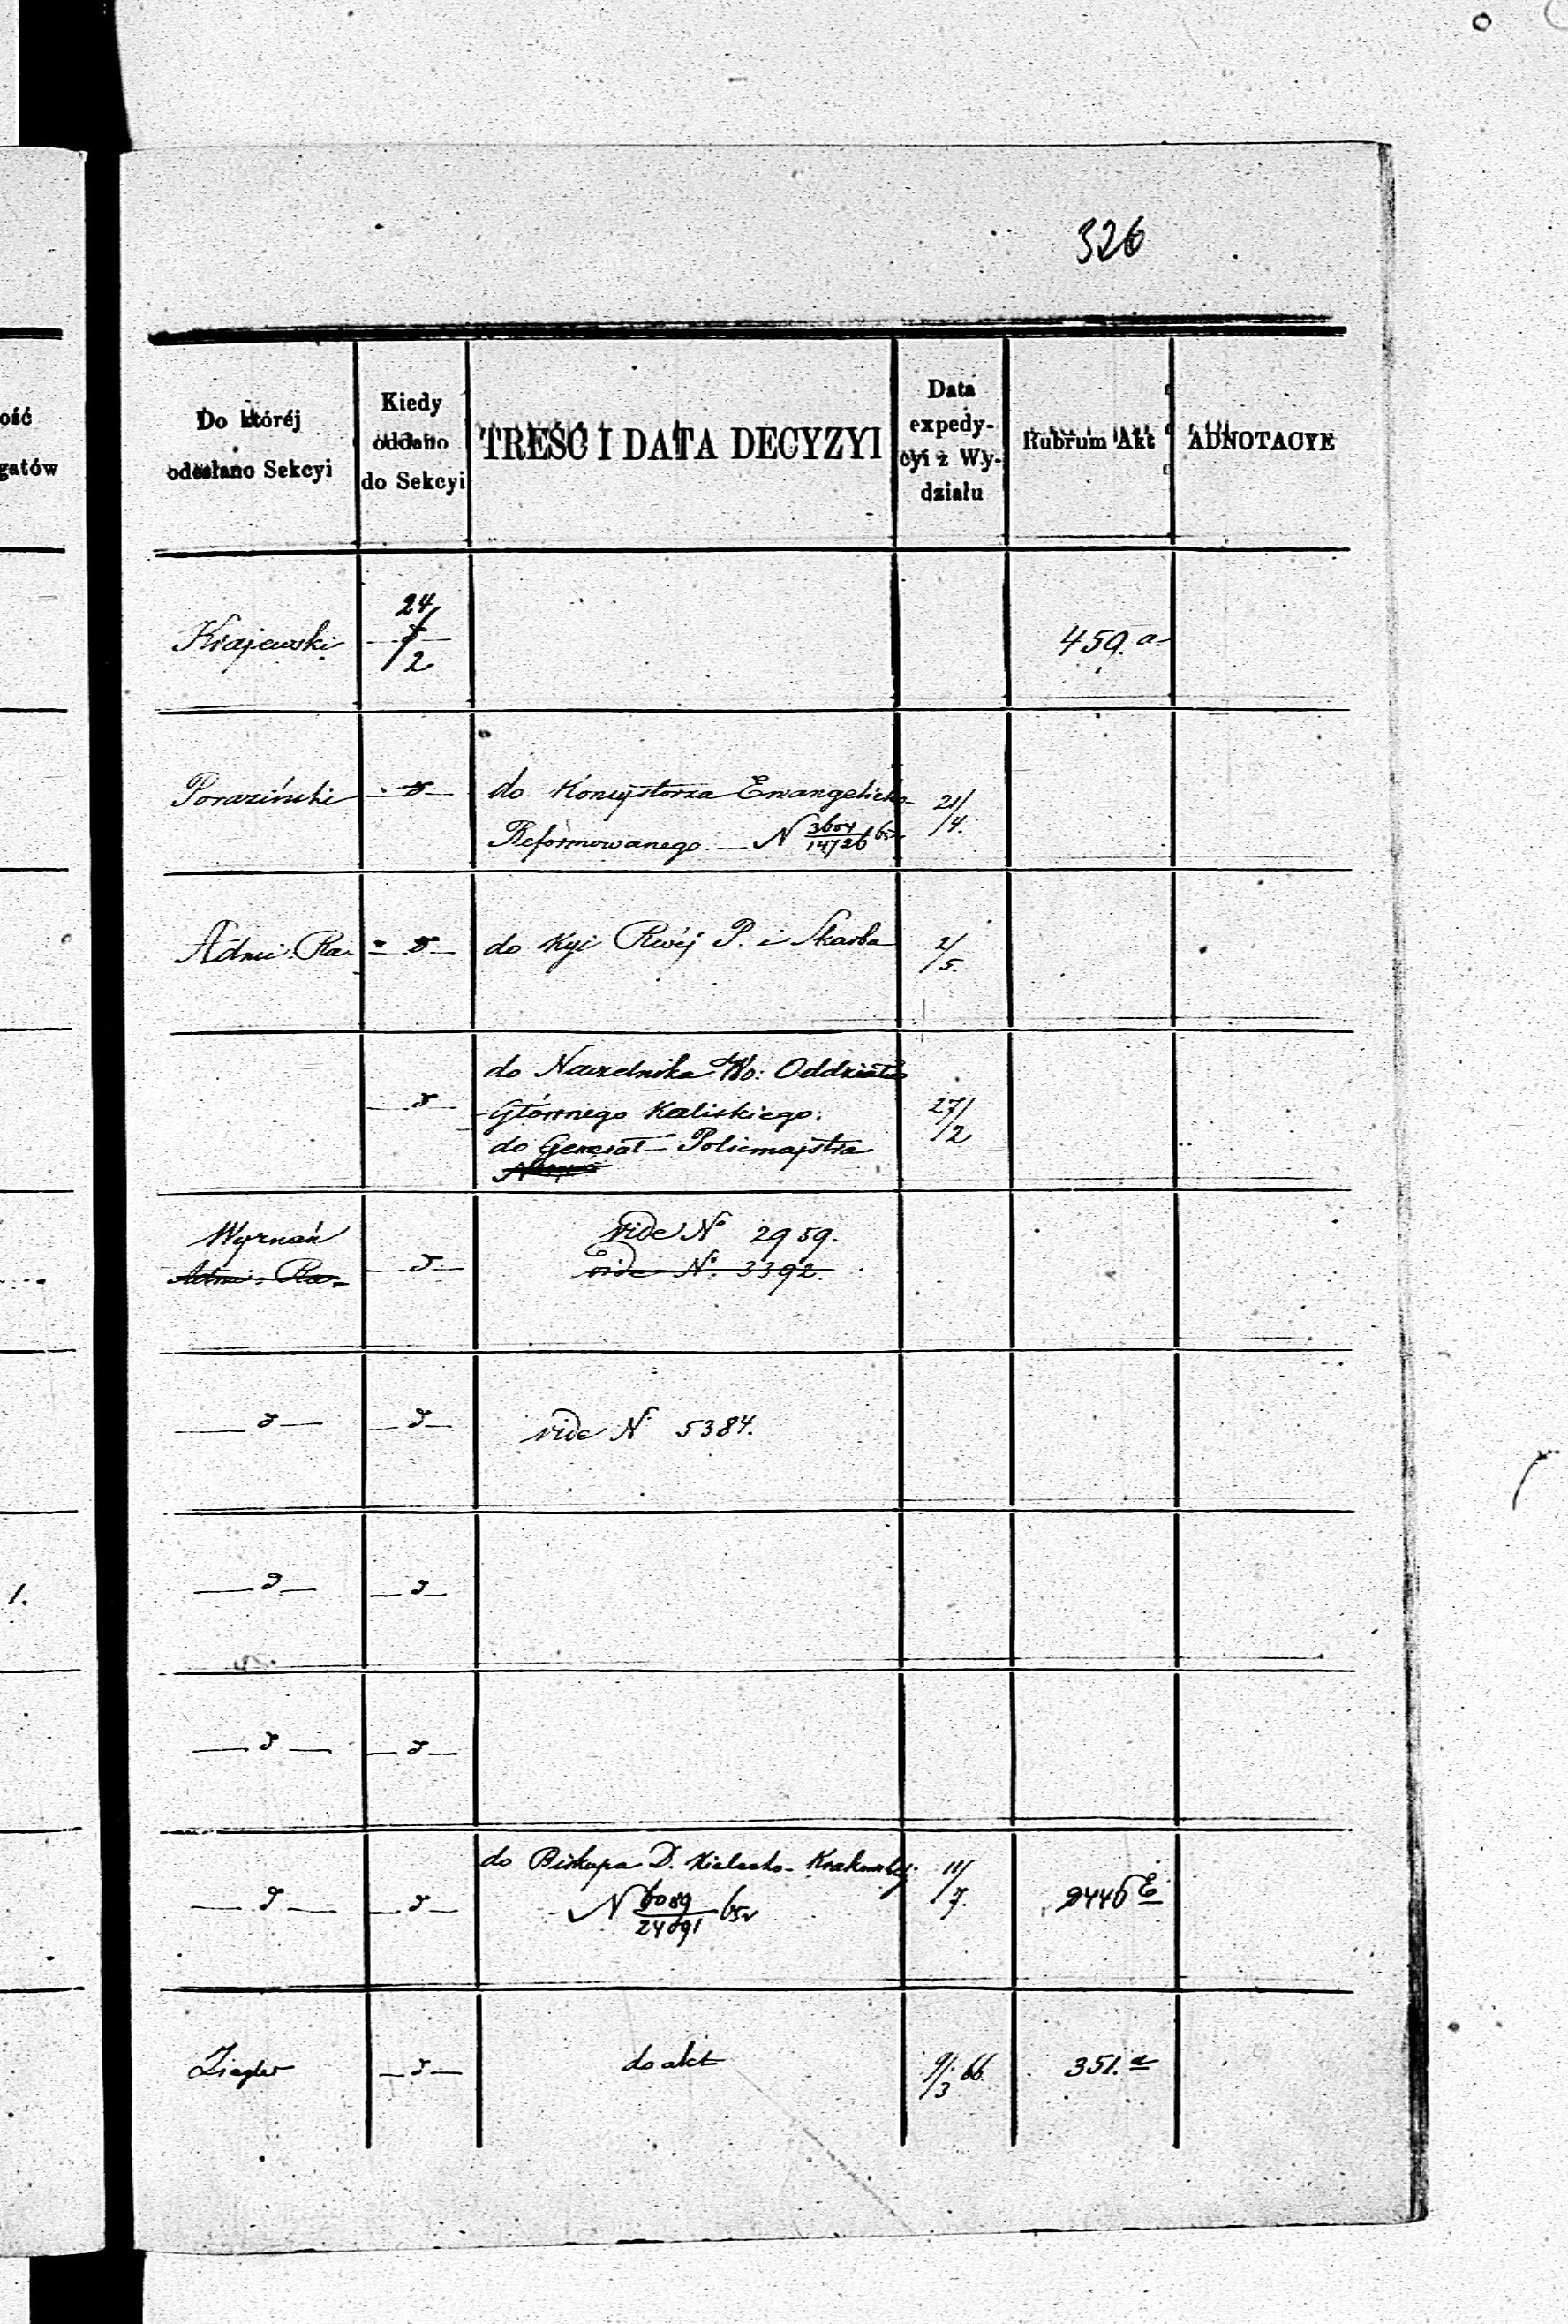 326
ość
gatów
Do któréj
odesłano Sekcyi
Kiedy
oddano
do Sekcyi
TREŚĆ I DATA DECYZYI
Data
expedy-
cyi z Wy-
działu
Rubrum Akt
ADNOTACYE
Krajewski
24/2
459. a
Poraziński
do Konsystorza Ewangelicko-
Reformowanego. — N 3604/14726
21/4.
Admi: Ra.
do Kyi Rwéj P. i Skarbu
2/5.
do Naczelnika Wo: Oddziału
Głównego Kaliskiego.
do Generał-Policmajstra
27/2
Wyznań
Admi: Ra.
vide No 2959.
vide No. 3392.
vide N 5384.
1.
do Biskupa D. Kielecko-Krakowskiej
N 6089/24091
11/7.
2446 E
Ziegler
do akt
9/3 66
351. a